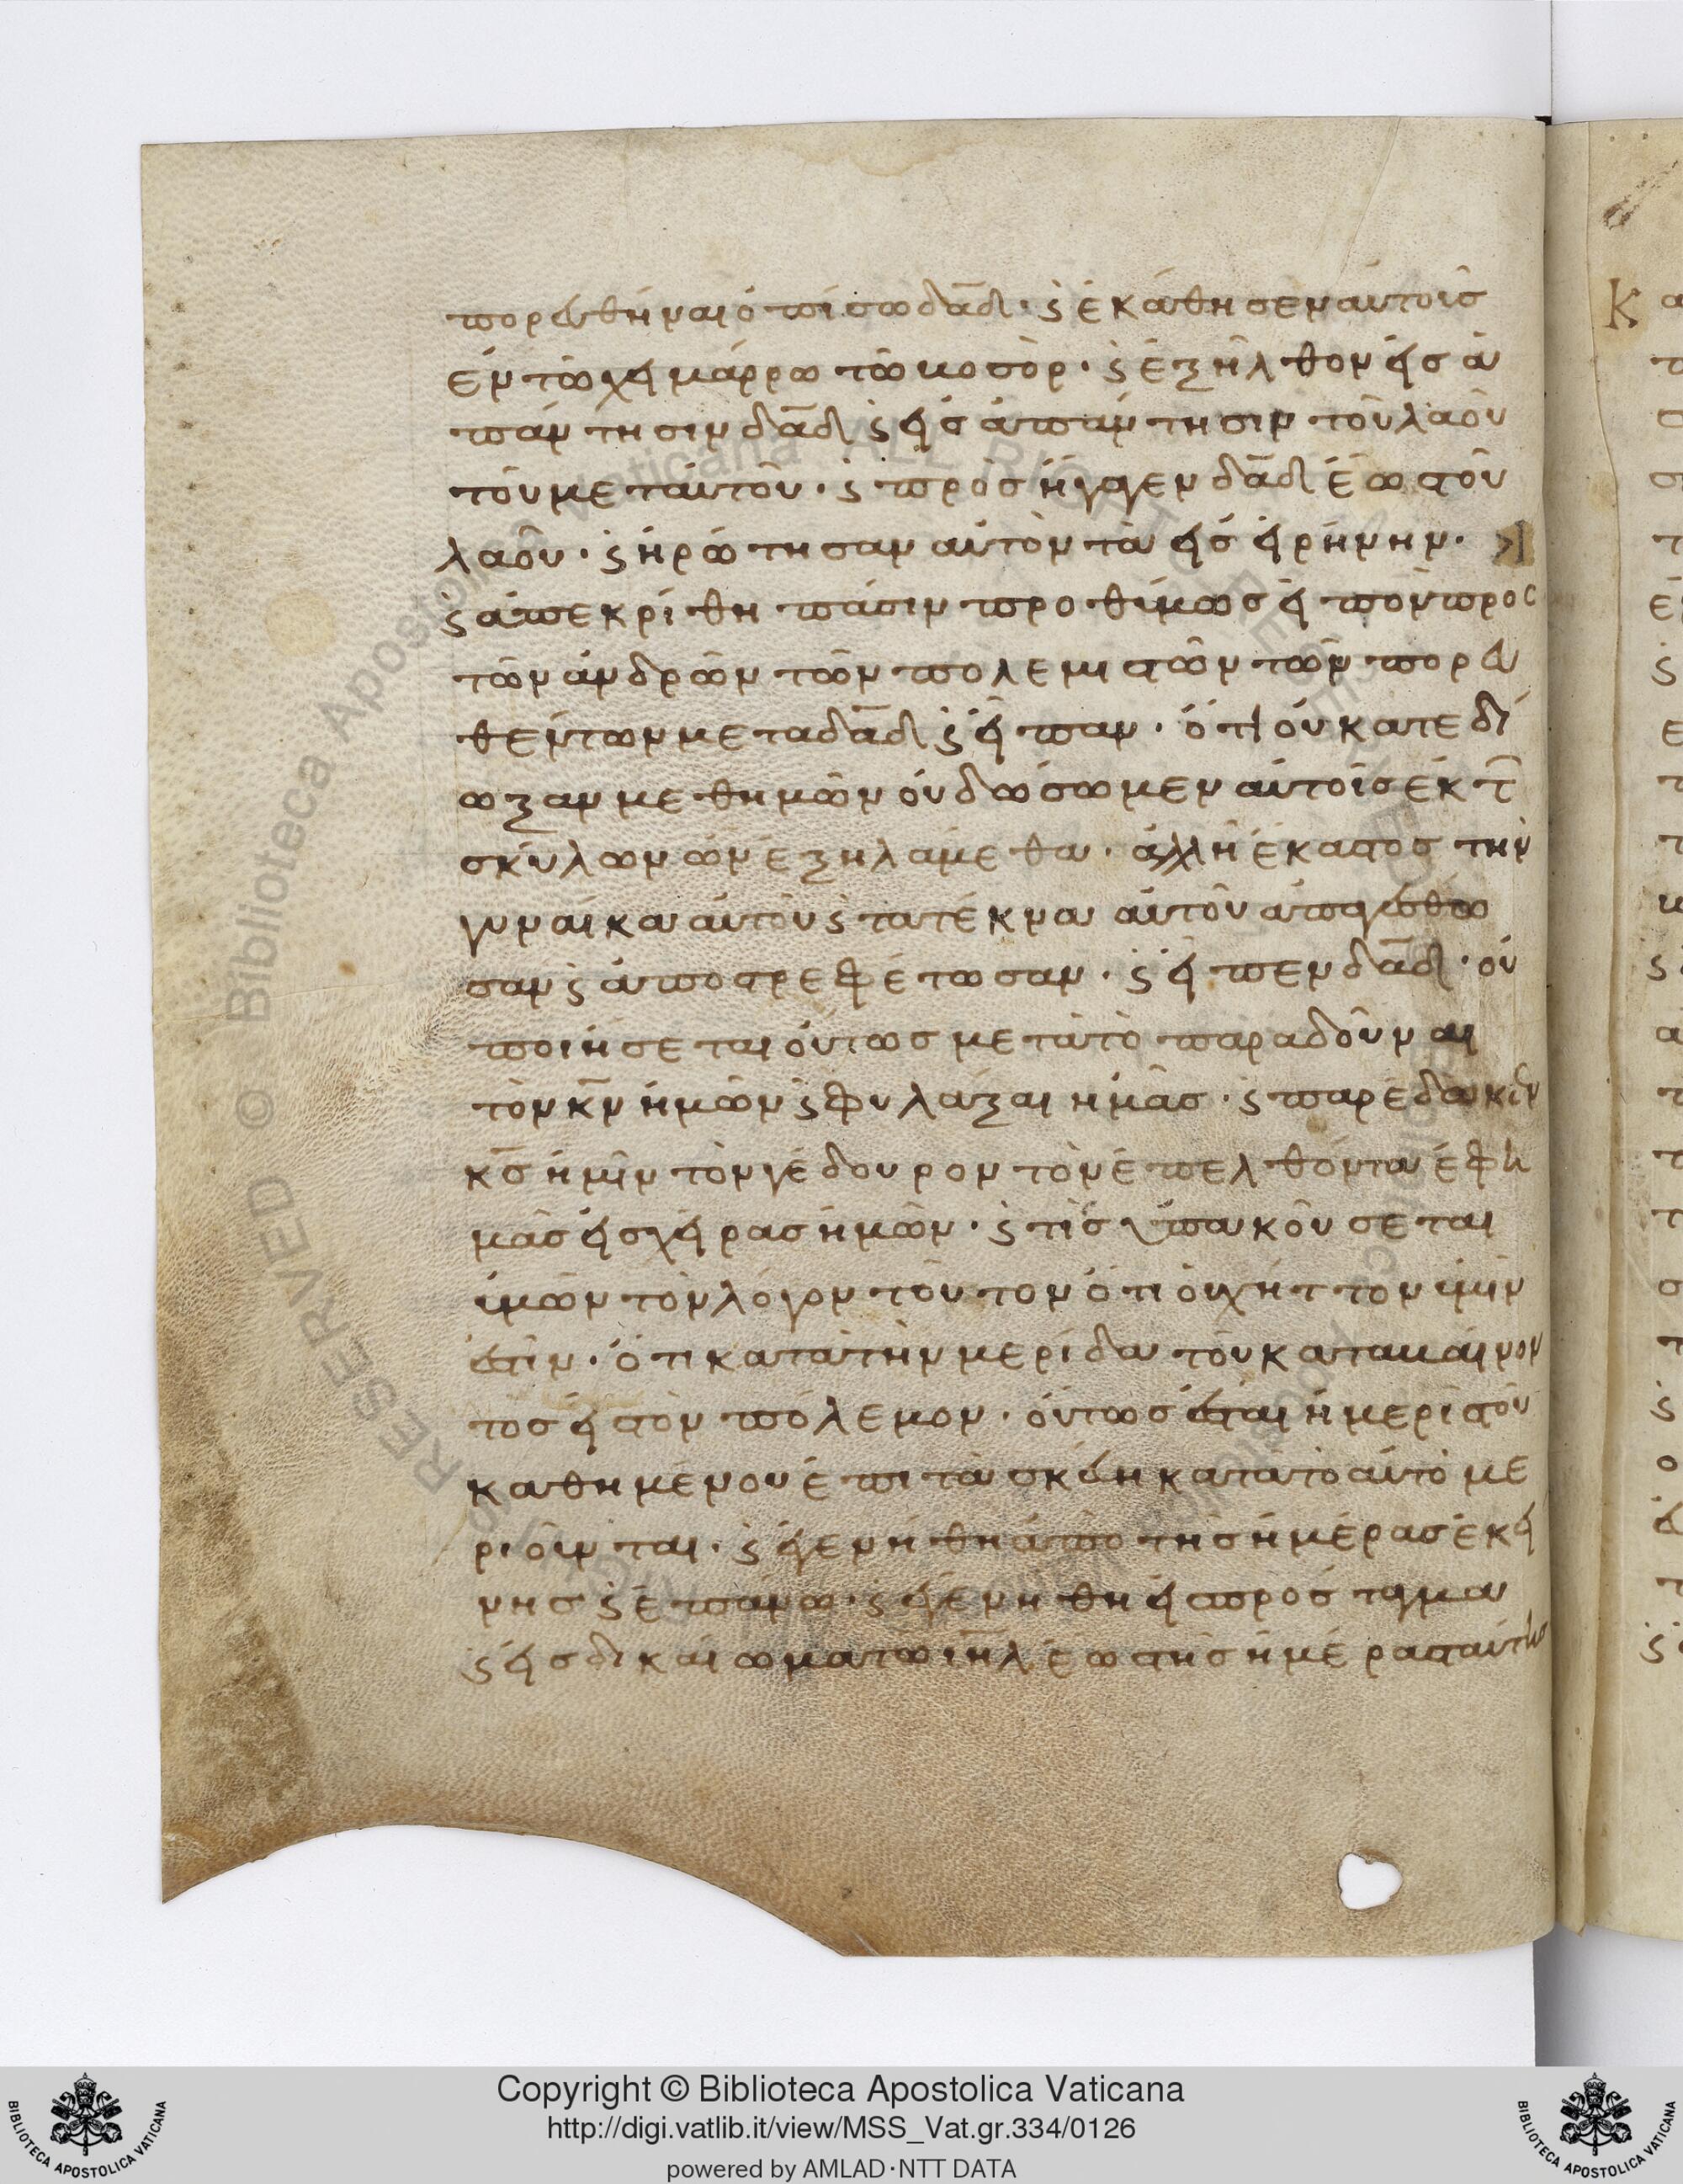 πορευθῆναι ὀπίσω δᾱδ· ϛ ἐκάθησεν αὐτοῖσ
ἐν τῶ χειμάρρω τῶ βοσόρ· ϛ ἐξῆλθον εἰσ ἀ
πάντησιν δᾱδ ϛ εἰσ ἀπάντησιν τοῦ λαοῦ
τοῦ μετ αὐτοῦ· ϛ προσήγαγεν δᾱδ ἕωσ τοῦ
λαοῦ· ϛ ἠρώτησαν αὐτὸν τὰ εἰσ εἰρήνην·
ϛ ἀπεκρίθη πάσιν προθύμωσ εἰπὸν προσ
τῶν ἀνδρῶν τῶν πολεμιστῶν τῶν πορευ
θέντων μετα δᾱδ ϛ εἶπαν· ὅτι οὐ κατεδί
ωξαν μεθ ημῶν οὐ δώσωμεν αὐτοῖσ ἐκ τ͂
σκύλων ὧν ἐξηλάμεθα· ἀλλ ἢ ἕκαστοσ τὴν
γυναίκα αὐτοῦ ϛ τα τέκνα αὐτοῦ ἀπαγέσθω
σαν ϛ ἀποστρεφέτωσαν· ϛ εἶπεν δᾱδ· οὐ
ποιήσεται οὕτωσ μετὰ τὸ παραδοῦναι
τὸν κ̄ν ἡμῶν ϛ φυλάξαι ἡμᾶσ· ϛ παρέδωκεν
κ̄σ ἡμῖν τὸν γεδουρον τὸν ἐπελθόντα ἐφ ἡ
μᾶσ εἰσ χεῖρασ ἡμῶν· ϛ τίσ ὑπακοῦσεται
ὑμῶν τὸν λόγον τοῦτον ὅτι οὐχ ἧττον ὑμῖν
ἐστιν· ὅτι κατὰ τὴν μερίδα τοῦ καταβαίνον
τοσ εἰσ τὸν πόλεμον· οὕτωσ ἔσται ἡ μερὶσ τοῦ
καθημένου ἐπι τὰ σκεύη κατὰ τὸ αὐτὸ με
ριοῦνται· ϛ ἐγενήθη ἀπὸ τῆσ ἡμέρασ ἐκεί
νησ ϛ ἐπάνω· ϛ ἐγενήθη εἰσ πρόσταγμα
ϛ εἰσ δικαίωμα τῶ ιη̄λ ἕωσ τῆσ ἡμέρασ ταύτησ